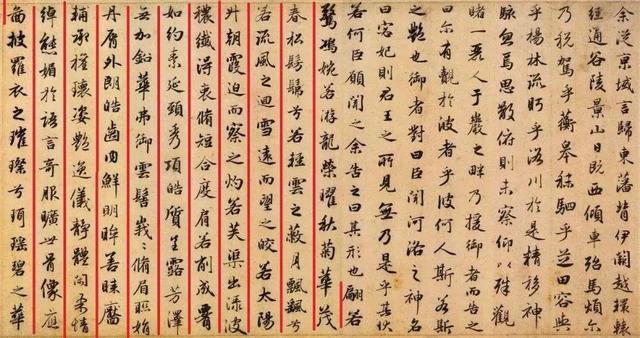 余從京域言歸東藩背伊闕越轘轅
經通谷陵景山日既西傾車殆馬煩尒
乃稅駕乎蘅皋秣駟乎芝田容與
乎楊林流盻乎洛川於是精移神
駭忽焉思散俯則未察仰以殊觀
睹一麗人于巖之畔乃援御者而告之
曰尒有覿於彼者乎彼何人斯若斯
之艷也御者對曰臣聞河洛之神名
曰宓妃則君王之所見無乃是乎其狀
若何臣願聞之余告之曰其形也翩若
驚鴻婉若游龍榮曜秋菊華茂
春松髣髴兮若輕雲之蔽月飄飄兮
若流風之迴雪遠而望之皎若太陽
升朝霞迫而察之灼若芙渠出淥波
穠纖得衷脩短合度肩若削成腰
如約素延頸秀項皓質呈露芳澤
無加鉛華弗御雲髻峩〻脩眉聯娟
丹脣外朗皓齒内鮮明眸善睞靨
輔承權瓌姿艷逸儀靜體閑柔情
綽態媚於語言奇服曠世骨像應
圖披羅衣之璀璨兮珥瑤碧之華